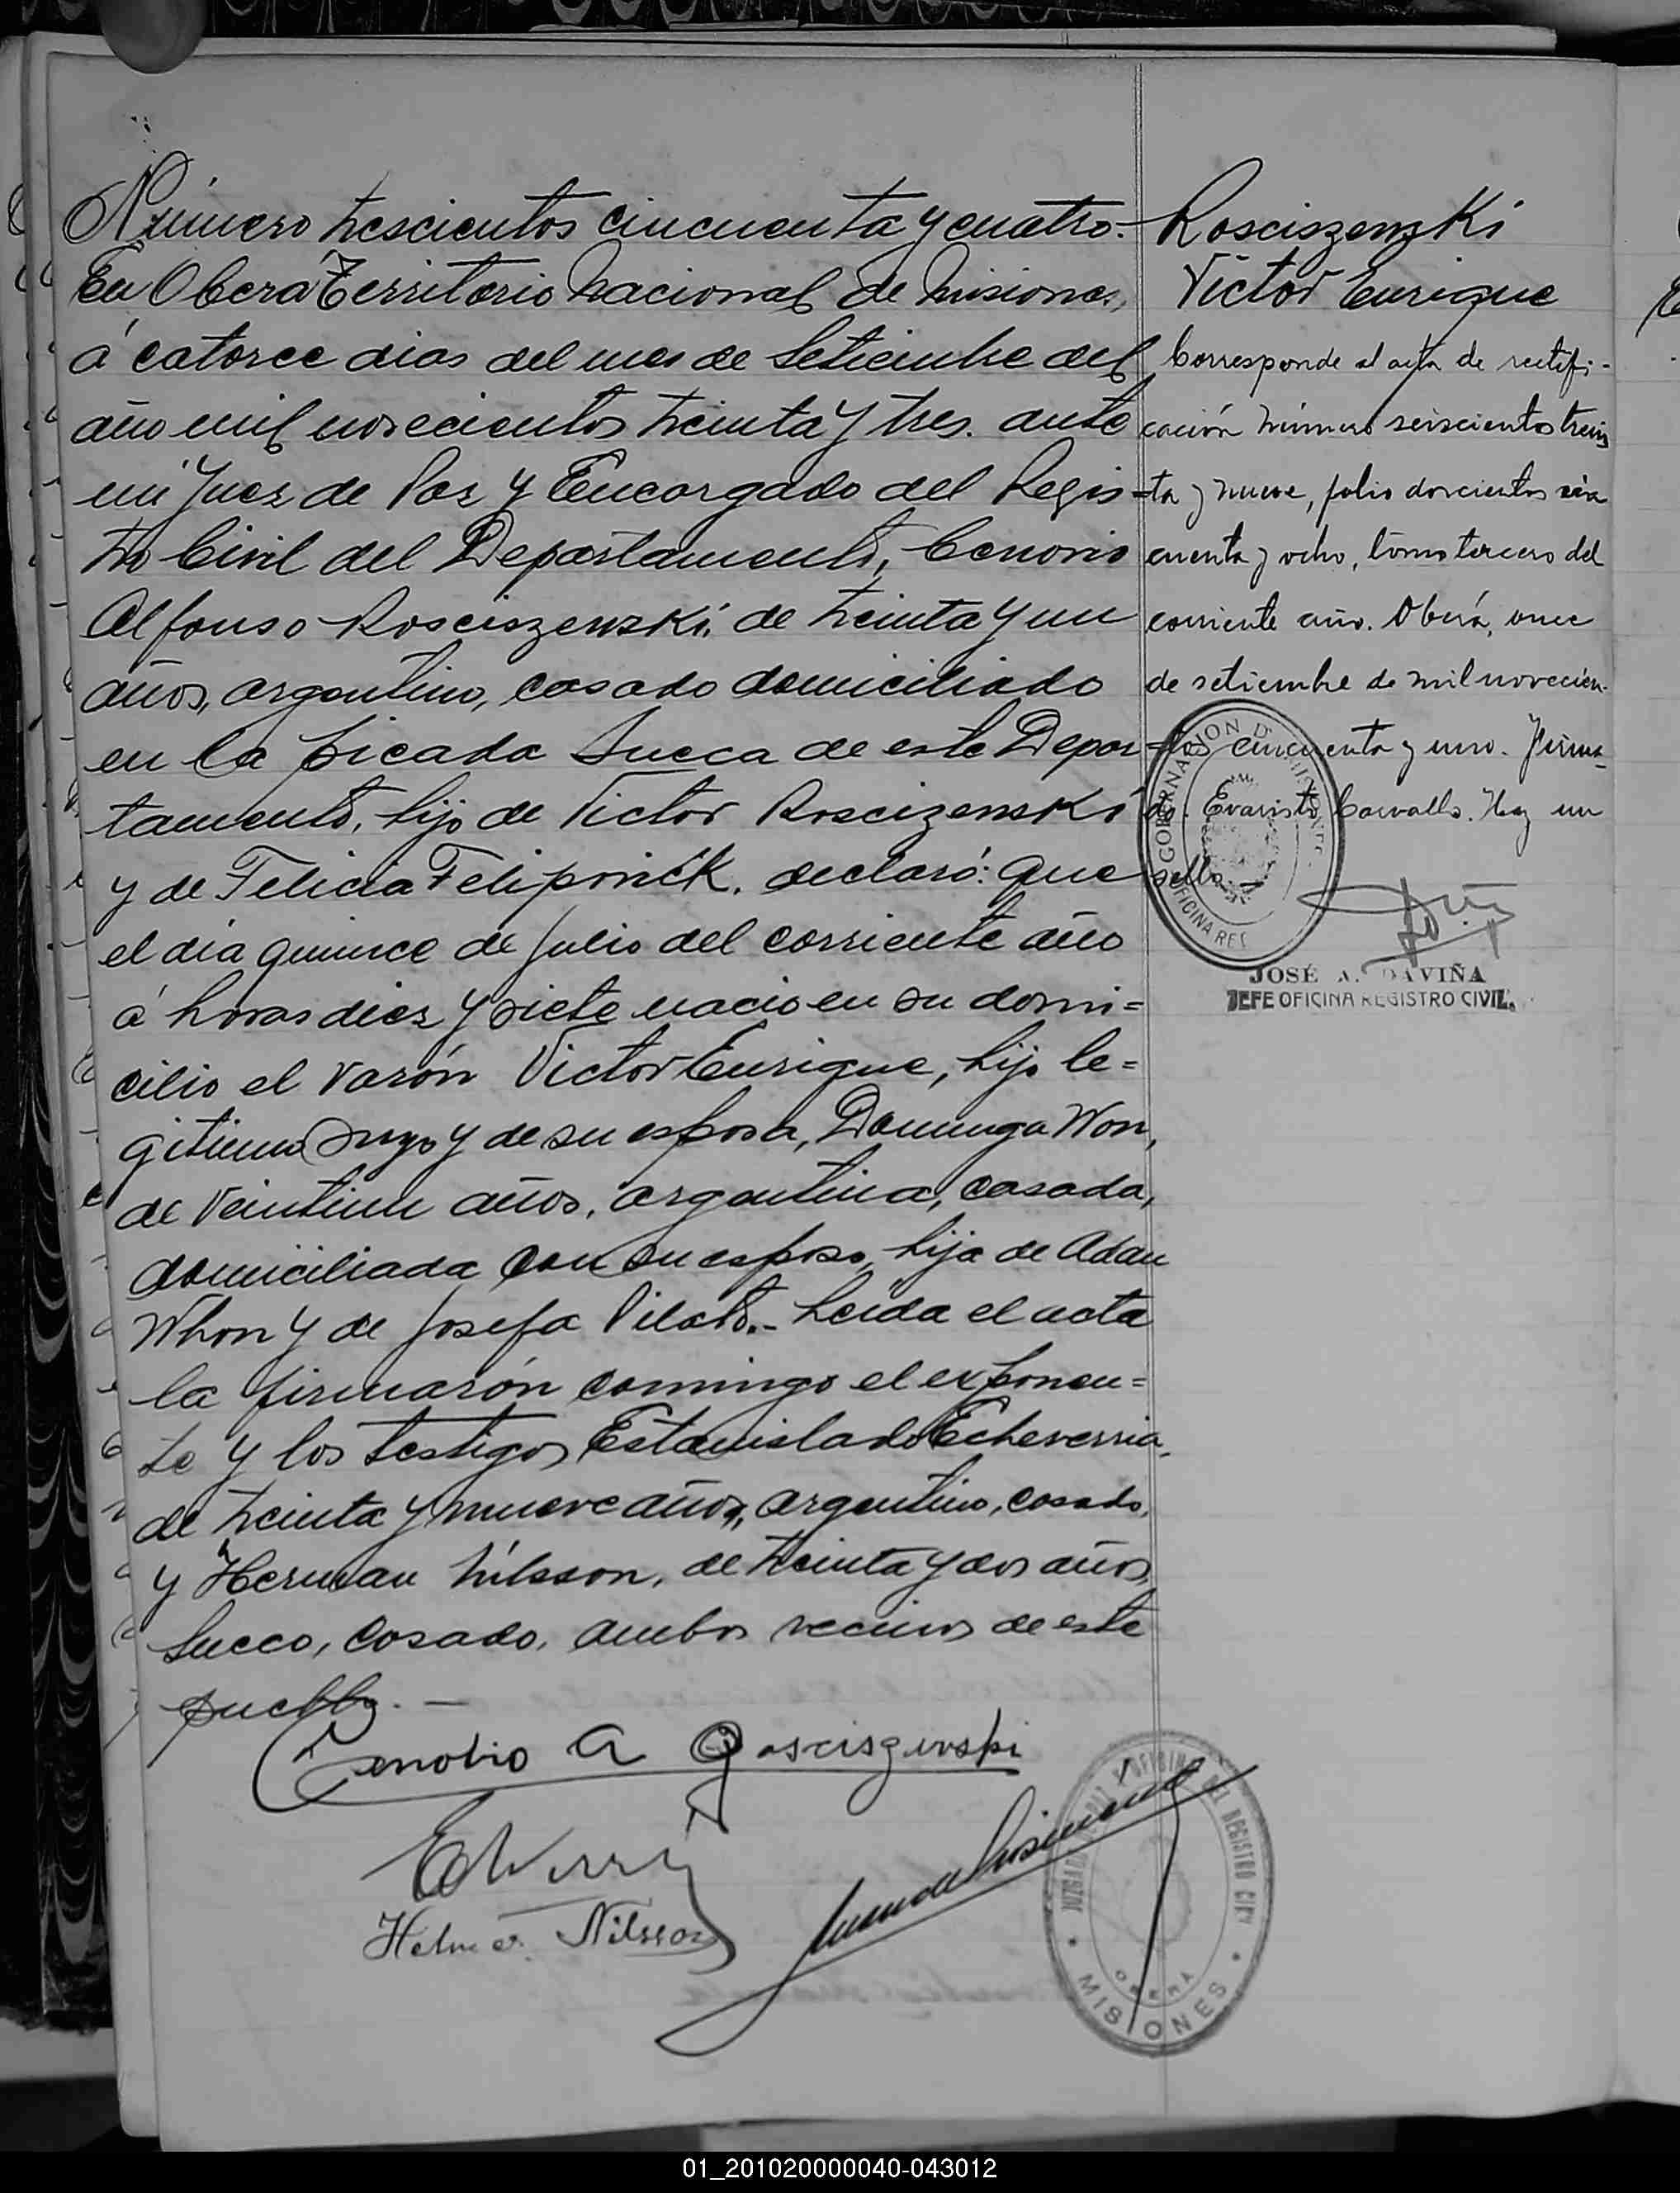 Número trescientos cincuenta y cuatro.
En Oberá Territorio Nacional de Misiones,
á catorce dias del mes de Setiembre del
año mil novecientos treinta y tres. ante
mi Juez de Paz y Encargado del Regis=
tro Civil del Departamento, Cenovio
Alfonso Rosciszewzki, de treinta y un
años, argentino, casado domiciliado
en la Picada Sueca de este Depar=
tamento, hijo de Victor Roscizenski
y de Felicia Feliponick. declaró: Que
el dia quince de Julio del corriente año
á horas diez y siete nacio en su domi=
cilio el varón Victor Enrique, hijo le=
gitimo suyo y de su esposa, Dominga Won,
de veintiun años, argentina, casada,
domiciliada con su esposo, hija de Adan
Whon y de Josefa Pilato.- Leida el acta
la firmarón comingo el exponen=
te y los testigos Estanislado Echeverria,
de treinta y nueve años, argentino, casado,
y Herman Nilsson, de treinta y dos años,
Sueco, casado, ambos vecinos de este
pueblo. —
Cenobio A Rosciszewski
Helmer Nilsson
Rosciszenzki
Victor Enrique
Corresponde al acta de rectifi-
cación número seiscientos trein
ta y nueve, folio doscientos cin
cuenta y ocho, tomo tercero del
corriente año. Oberá, once
de setiembre de mil novecien-
tos cincuenta y uno. Firma-
do. Evaristo Carvallo. Hay un
sello.
GOBERNACION D MISIONES
OFICINA REG
JOSÉ A. DAVIÑA
JEFE OFICINA REGISTRO CIVIL.
JUZGADO DE PAZ Y OFICINA DEL REGISTRO CIVI
OBERÁ
MISIONES
01_201020000040-043012